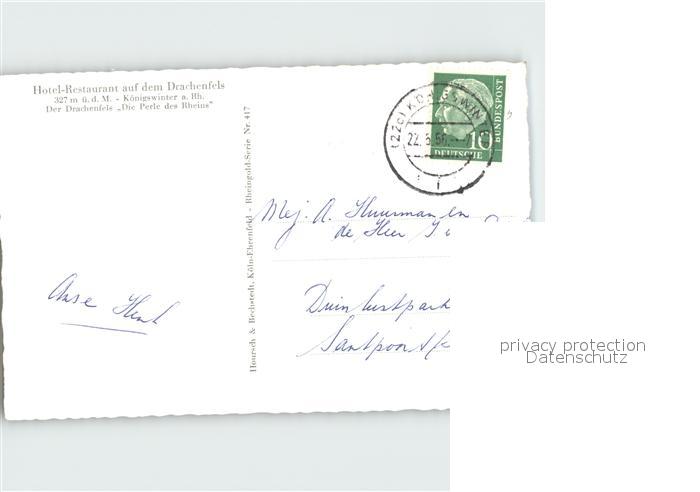 Hotel-Restaurant auf dem Drachenfels
327 m ü. d. M. - Königswinter a. Rh.
Der Drachenfels „Die Perle des Rheins"
Hoursch & Bechstedt, Köln-Ehrenfeld - Rheingold-Serie Nr. 417
(22c) KÖNIGSWIN
22. 5. 56
DEUTSCHE
10
BUNDESPOST
Mej. A. Stuurman en
de Heer
Duinlustpark
Santpoort
Anse Henk
privacy protection
Datenschutz